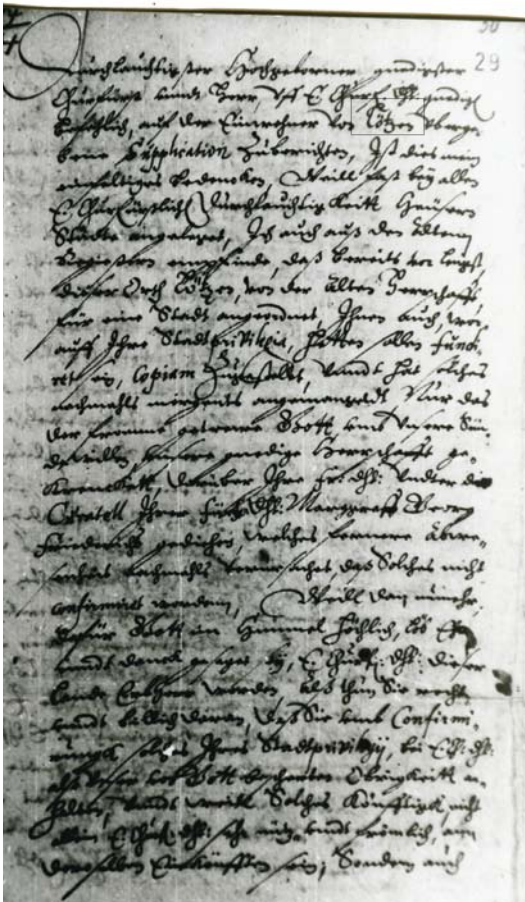 50
29
Durchlauchtigster Hochgeborner gnedigster
Churfürst undt Herr, Uff E. Churf. Dht: gnedigst
befehlich, auf der Einwohner von Lötzen überge-
bene Supplication Zuberichten, Ist dies mein
einfeltiges bedencken, Weill fast bey allen
E. Churfürstlich Durchleuchtigkeitt Heusern
Städte angeleget, Ich auch auß den ältern
Registern empfinde, daß bereits vor lengst,
dieser Orth Lötzen, von der Alten Herrschafft,
für eine Stadt angeordnet, Ihnen auch, wor-
auff Ihre Stadtprivilegia, hetten sollen fundi-
ret sein, Copiam Zugestellet, undt hat solches
nachmahls nirgents angemangelt Nur das
der fromme getrewe Gott, umb unsere Sün-
de willen, unsere gnedige Herrschafft ge-
krencket, darüber Ihre Fr: Dht: Undter die
Curatell Ihrer Fürstl: Dht: Marggraff Georg
Friederichs gediehen, welches fernere Abwe-
senheit nachmahls verursachet, daß Solches nicht
confirmirt worden, Weill dan nunmehr,
dafür Gott im Himmel höchlich, lob Ehr
undt danck gesaget sey, E. Churf: Dht: dieser
lande Erbherr worden Alß thun Sie recht
undt billich daran, daß Sie umb Confirmi-
rungk solches Ihres Stadtprivilegij, bei E. Ch: Dht:
alß dieser von Gott bescherten Obrigkeitt an-
halten, undt weill Solches Künfftigk, nicht
allein E. Churf: Dht: sehr nütz undt frömlich, an
deroselben Einkünfften sein, Sondern auch